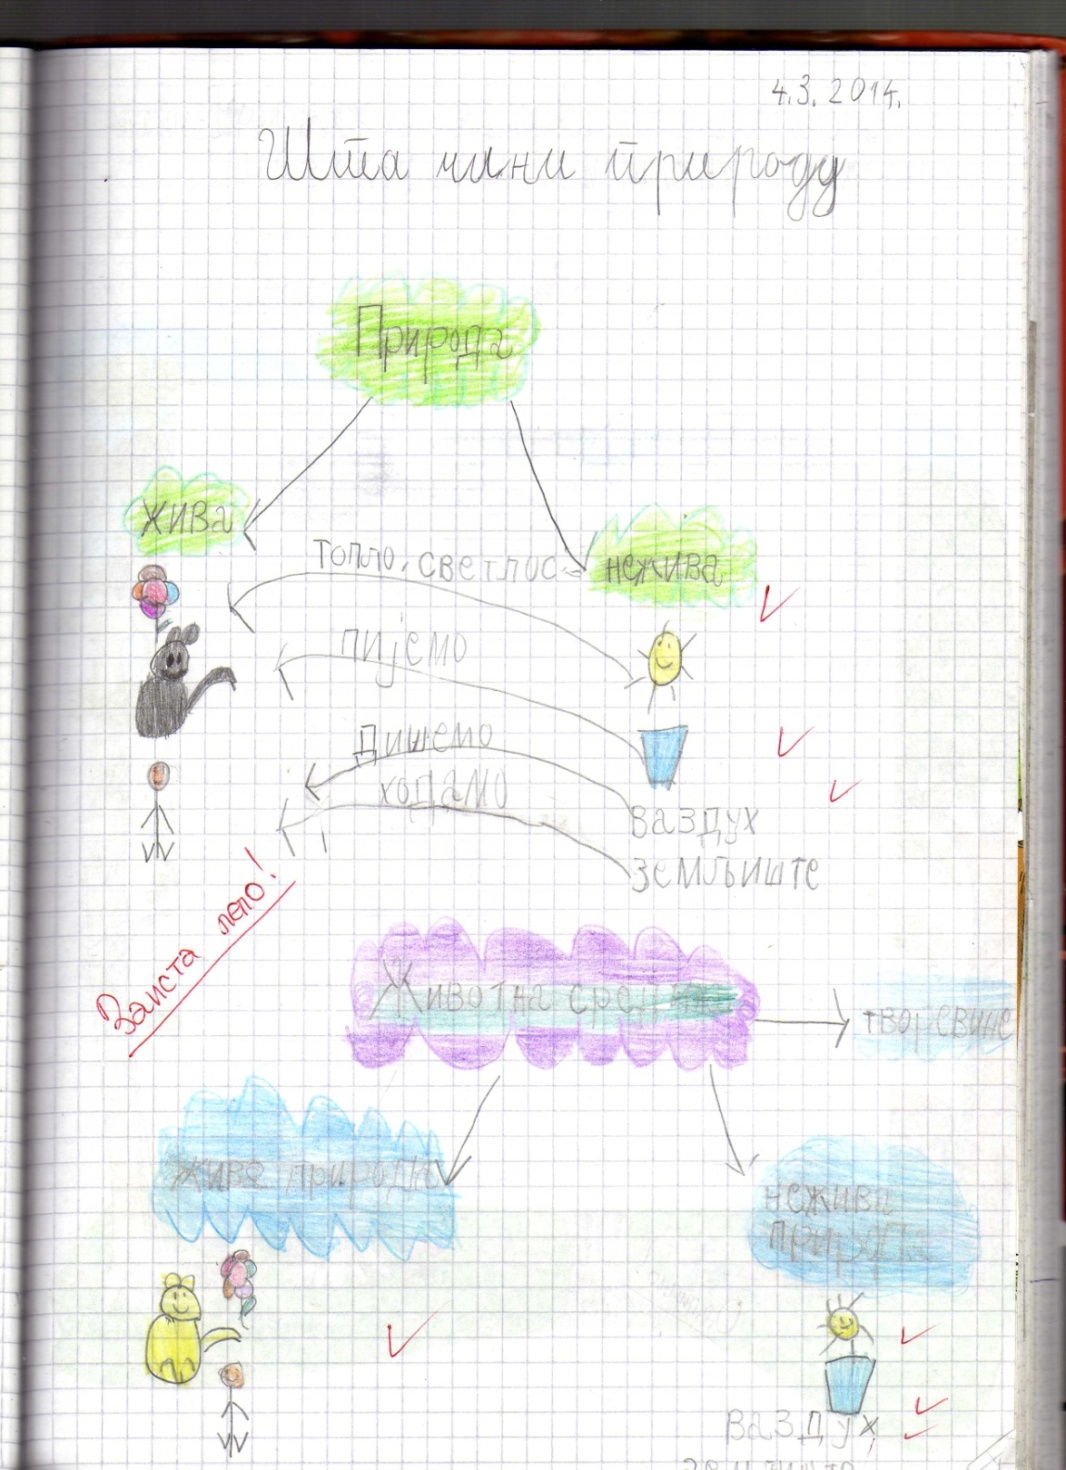 4.3.2014.
Шта чини природу
Природа
жива
нежива
топло, светлос
пијемо
дишемо
ходамо
ваздух
земљиште
Заиста лепо!
Животна
жива природа
нежива
ваздух